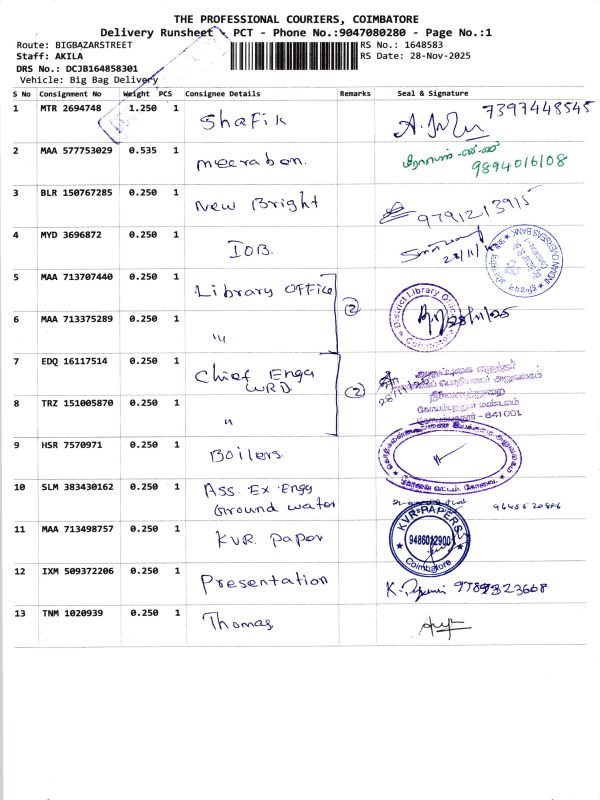 THE PROFESSIONAL COURIERS, COIMBATORE
Delivery Runsheet - PCT - Phone No.:9047080280 - Page No.:1
Route: BIGBAZARSTREET
RS No.: 1648583
Staff: AKILA
RS Date: 28-Nov-2025
DRS No.: DCJB164858301
Vehicle: Big Bag Delivery
S No Consignment No Weight PCS Consignee Details Remarks Seal & Signature
1 MTR 2694748 1.250 1 Shafik 7397448545
2 MAA 577753029 0.535 1 meeraben. 9894016108
3 BLR 150767285 0.250 1 New Bright 9791213915
4 MYD 3696872 0.250 1 IOB. INDIAN OVERSEAS BANK
5 MAA 713707440 0.250 1 Library Office 2 District Library Office Coimbatore
6 MAA 713375289 0.250 1 "
7 EDQ 16117514 0.250 1 Chief Engg WRD. 2
8 TRZ 151005870 0.250 1 " கோயம்புத்தூர் மண்டலம் கோயம்புத்தூர் - 641 001
9 HSR 7570971 0.250 1 Boilers.
10 SLM 383430162 0.250 1 Ass. Ex. Engg Ground water
11 MAA 713498757 0.250 1 KVR. Paper KVR PAPERS 9486012900 Coimbatore
12 IXM 509372206 0.250 1 Presentation
13 TNM 1020939 0.250 1 Thomas